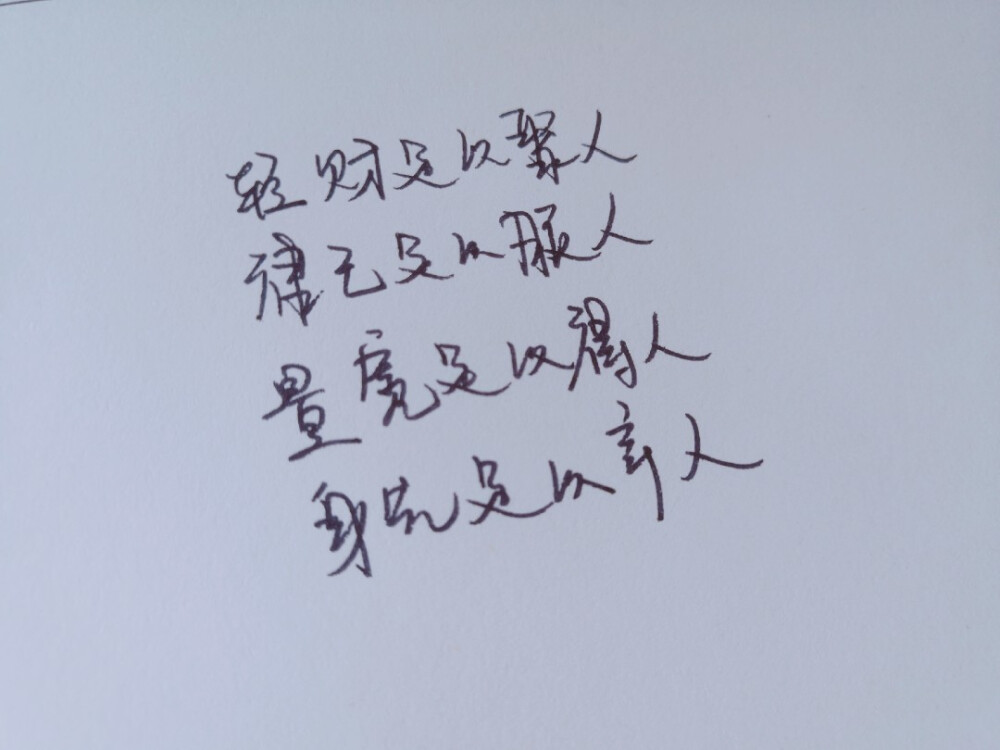 轻财足以聚人
律己足以服人
量宽足以得人
身先足以率人